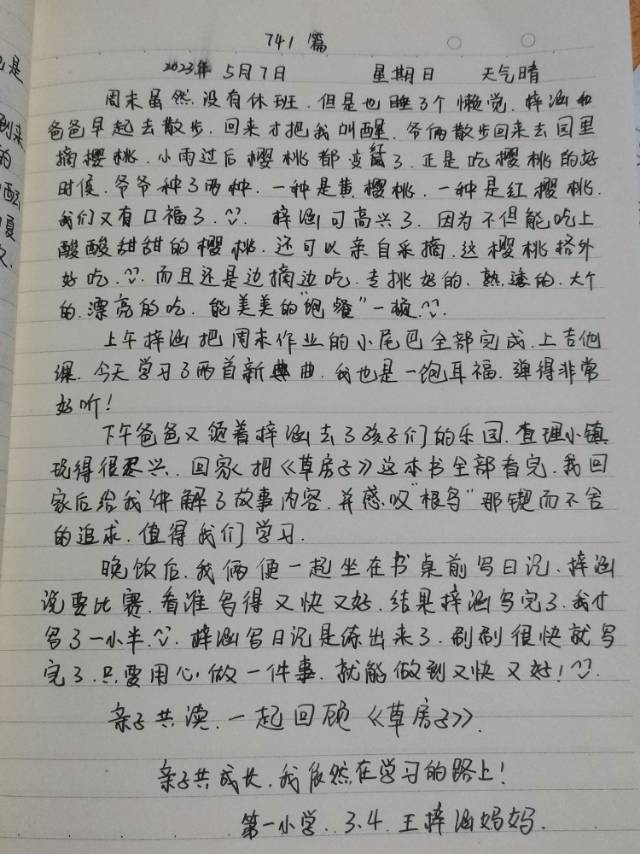 741篇
2023年 5月7日 星期日 天气晴
周末虽然没有休班.但是也睡了个懒觉.梓涵和
爸爸早起去散步.回来才把我叫醒.爷俩散步回来去园里
摘樱桃.小雨过后樱桃都变红了.正是吃樱桃的好
时候.爷爷种了两种.一种是黄樱桃.一种是红樱桃.
我们又有口福了. 梓涵可高兴了.因为不但能吃上
酸酸甜甜的樱桃.还可以亲自采摘.这樱桃格外
好吃. 而且还是边摘边吃.专挑好的.熟透的.大个
的.漂亮的吃.能美美的"饱餐"一顿.
上午梓涵把周末作业的小尾巴全部完成.上吉他
课.今天学习了两首新典曲.我也是一饱耳福.弹得非常
好听!
下午爸爸又领着梓涵去了孩子们的乐园.查理小镇
玩得很尽兴.回家把《草房子》这本书全部看完.我回
家后给我讲解了故事内容.并感叹"根鸟"那锲而不舍
的追求.值得我们学习.
晚饭后.我俩便一起坐在书桌前写日记.梓涵
说要比赛.看谁写得又快又好.结果梓涵写完了.我才
写了一小半. 梓涵写日记是练出来了.刷刷很快就写
完了.只要用心做一件事.就能做到又快又好!
亲子共读.一起回顾《草房子》.
亲子共成长.我依然在学习的路上!
第一小学.3.4.王梓涵妈妈.